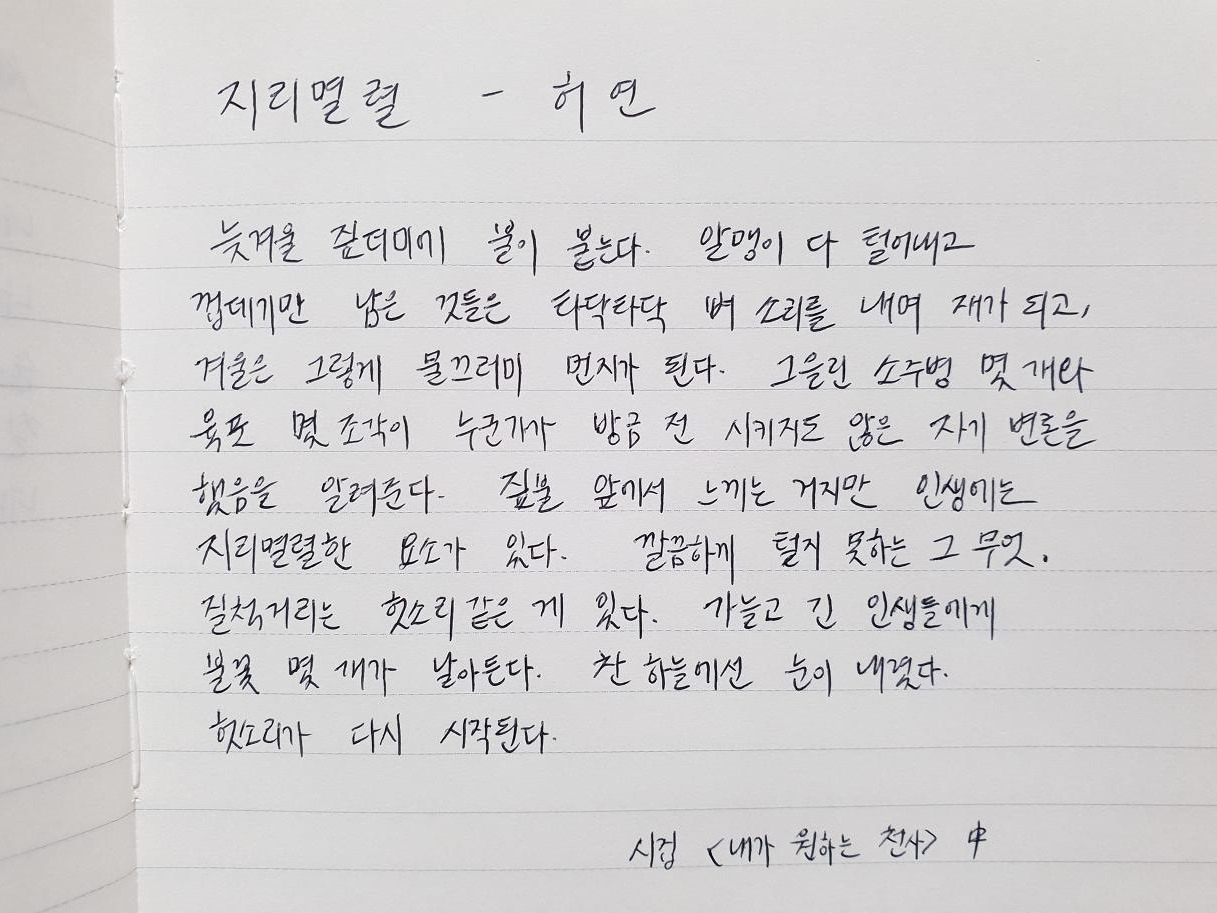 지리멸렬 - 허연
늦겨울 짚더미에 불이 붙는다. 알맹이 다 털어내고
껍데기만 남은 것들은 타닥타닥 뼈 소리를 내며 재가 되고,
겨울은 그렇게 물끄러미 먼지가 된다. 그을린 소주병 몇 개와
육포 몇 조각이 누군가가 방금 전 시키지도 않은 자기 변론을
했음을 알려준다. 짚불 앞에서 느끼는 거지만 인생에는
지리멸렬한 요소가 있다. 깔끔하게 털지 못하는 그 무엇.
질척거리는 헛소리 같은 게 있다. 가늘고 긴 인생들에게
불꽃 몇 개가 날아든다. 찬 하늘에선 눈이 내렸다.
헛소리가 다시 시작된다.
시집 <내가 원하는 천사> 中